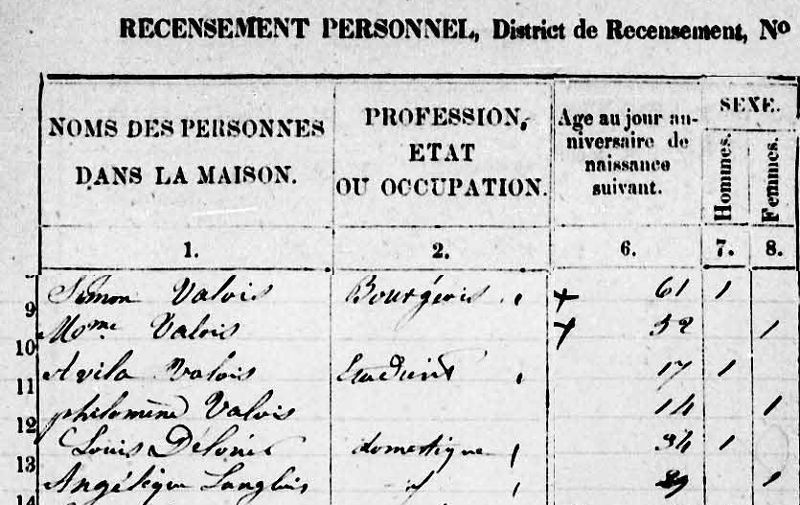 RECENSEMENT PERSONNEL, District de Recensement, No
NOMS DES PERSONNES DANS LA MAISON.
PROFESSION, ETAT OU OCCUPATION.
Age au jour anniversaire de naissance suivant.
SEXE.
Hommes.
Femmes.
1. 2. 6. 7. 8.
9 Simon Valois Bourgeois , + 61 1
10 Mme Valois + 52 1
11 Avila Valois Etudient , 17 1
12 philomène Valois 14 1
13 Louis domestique , 34 1
14 Angélique Langlois , 1